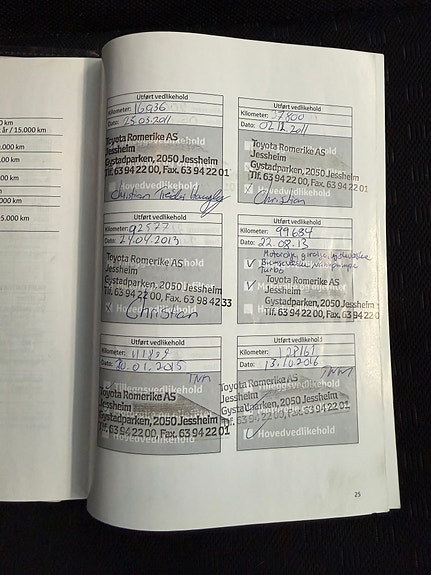 km
år / 15.000 km
.000 km
.000 km
.000 km
km
.000 km
5.000 km
Utført vedlikehold
Kilometer: 16936
Dato: 25.03.2011
Toyota Romerike AS
Jessheim
Gystadparken, 2050 Jessheim
Tlf. 63 94 22 00, Fax. 63 94 22 01
Hovedvedlikehold
Christian
Utført vedlikehold
Kilometer: 37800
Dato: 02.12.2011
Toyota Romerike AS
Jessheim
Gystadparken, 2050 Jessheim
Tlf. 63 94 22 00, Fax. 63 94 22 01
Hovedvedlikehold
Christian
Utført vedlikehold
Kilometer: 92577
Dato: 24.04.2013
Toyota Romerike AS
Jessheim
Gystadparken, 2050 Jessheim
Tlf. 63 94 22 00, Fax. 63 98 42 33
Christian
Utført vedlikehold
Kilometer: 99684
Dato: 22.08.13
Motorolje, girolje,
Bremsevæske
Turbo
Toyota Romerike AS
Jessheim
Gystadparken, 2050 Jessheim
Tlf. 63 94 22 00, Fax. 63 94 22 01
Utført vedlikehold
Kilometer: 111829
Dato: 20.01.2015
TNM
Tilleggsvedlikehold
Toyota Romerike AS
Jessheim
Gystadparken, 2050 Jessheim
Tlf. 63 94 22 00, Fax. 63 94 22 01
Hovedvedlikehold
Utført vedlikehold
Kilometer: 128161
Dato: 13.10.2016
TNM
Tilleggsvedlikehold
Toyota Romerike AS
Jessheim
Gystadparken, 2050 Jessheim
Tlf. 63 94 22 00, Fax. 63 94 22 01
Hovedvedlikehold
25